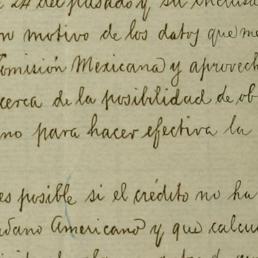 24 del pasado y su inclus
n motivo de los datos que me
omisión Mexicana y aprovech
cerca de la posibilidad de ob
no para hacer efectiva la
es posible si el crédito no ha
dano Americano y que calcu